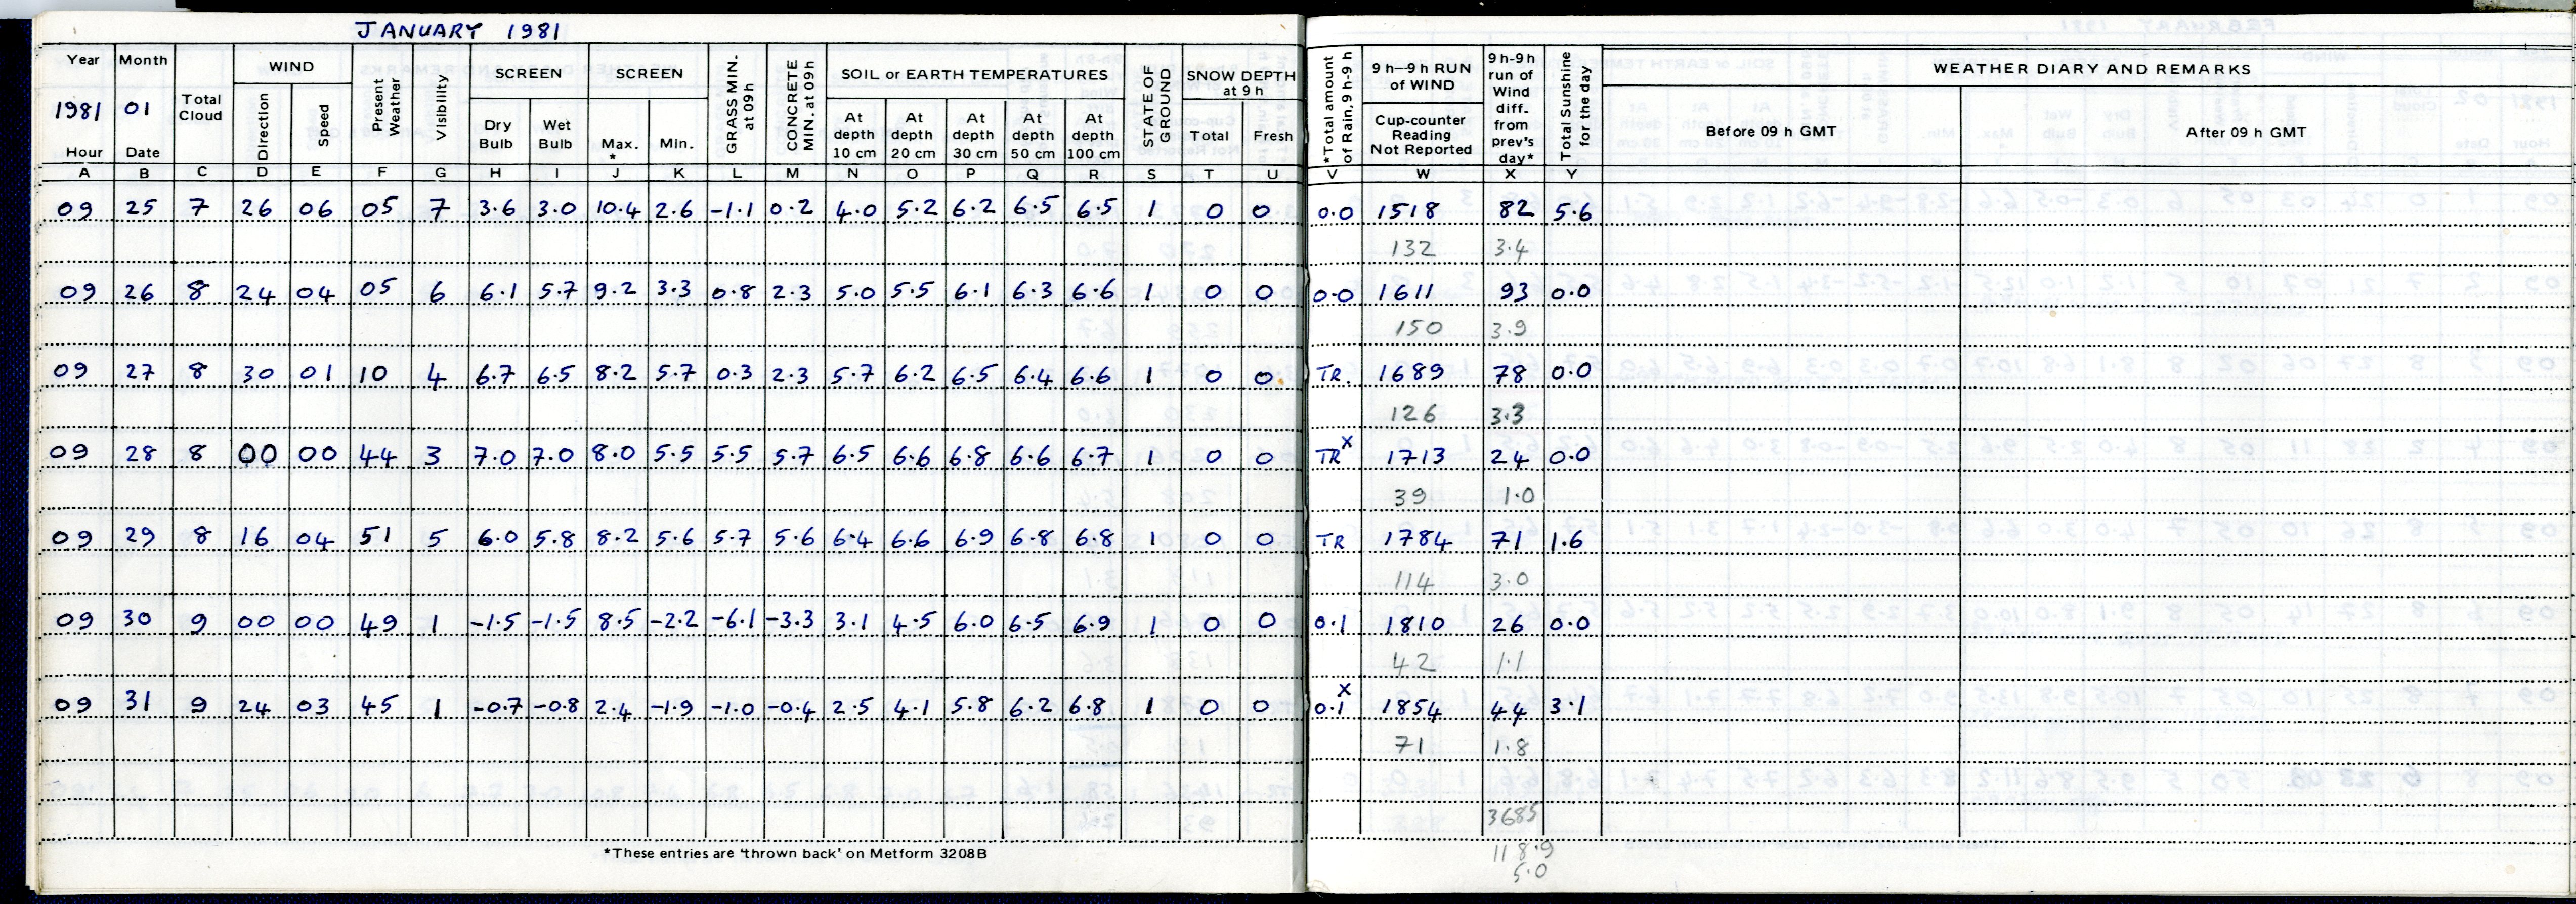 JANUARY 1981
Year Month Total Cloud WIND Present Weather Visibility SCREEN SCREEN GRASS MIN. at 09h CONCRETE MIN. at 09h SOIL or EARTH TEMPERATURES STATE OF GROUND SNOW DEPTH at 9 h *Total amount of Rain, 9 h-9 h 9 h–9 h RUN of WIND 9 h-9 h run of Wind diff. from prev's day* Total Sunshine for the day WEATHER DIARY AND REMARKS
1981 01 Direction Speed Dry Bulb Wet Bulb Max. * Min. At depth 10 cm At depth 20 cm At depth 30 cm At depth 50 cm At depth 100 cm Total Fresh Cup-counter Reading Not Reported Before 09 h GMT After 09 h GMT
Hour Date
A B C D E F G H I J K L M N O P Q R S T U V W X Y
09 25 7 26 06 05 7 3.6 3.0 10.4 2.6 -1.1 0.2 4.0 5.2 6.2 6.5 6.5 1 0 0 0.0 1518 82 5.6
132 3.4
09 26 8 24 04 05 6 6.1 5.7 9.2 3.3 0.8 2.3 5.0 5.5 6.1 6.3 6.6 1 0 0 0.0 1611 93 0.0
150 3.9
09 27 8 30 01 10 4 6.7 6.5 8.2 5.7 0.3 2.3 5.7 6.2 6.5 6.4 6.6 1 0 0 TR. 1689 78 0.0
126 3.3
09 28 8 00 00 44 3 7.0 7.0 8.0 5.5 5.5 5.7 6.5 6.6 6.8 6.6 6.7 1 0 0 TR x 1713 24 0.0
39 1.0
09 29 8 16 04 51 5 6.0 5.8 8.2 5.6 5.7 5.6 6.4 6.6 6.9 6.8 6.8 1 0 0 TR 1784 71 1.6
114 3.0
09 30 9 00 00 49 1 -1.5 -1.5 8.5 -2.2 -6.1 -3.3 3.1 4.5 6.0 6.5 6.9 1 0 0 0.1 1810 26 0.0
42 1.1
09 31 9 24 03 45 1 -0.7 -0.8 2.4 -1.9 -1.0 -0.4 2.5 4.1 5.8 6.2 6.8 1 0 0 0.1 x 1854 44 3.1
71 1.8
3685
*These entries are 'thrown back' on Metform 3208B
118.9
5.0